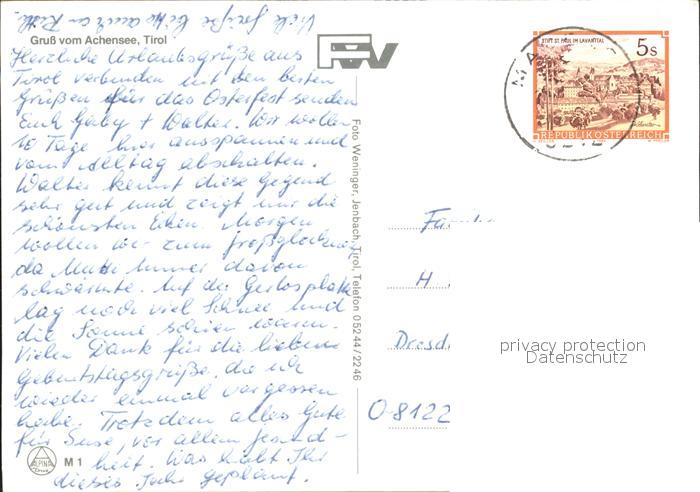 Viele Grüße bitte auch an
Gruß vom Achensee, Tirol
Herzliche Urlaubsgrüße aus
Tirol verbunden mit den besten
Grüßen für das Osterfest senden
Euch Gaby + Walter. Wir wollen
10 Tage hier ausspannen und
vom Alltag abschalten.
Walter kennt diese Gegend
sehr gut und zeigt mir die
schönsten Ecken. Morgen
wollen wir zum Großglockner
da Mutti immer davon
schwärmte. Auf der Gerlosplatte
lag noch viel Schnee und
die Sonne schien warm.
Vielen Dank für die lieben
Geburtstagsgrüße, die ich
wieder einmal vergessen
habe. Trotzdem alles Gute
für Suse, vor allem Gesund-
heit. Was habt Ihr
dieses Jahr geplant.
ALPINA
Druck
M 1
Foto Weninger, Jenbach, Tirol, Telefon 05244/2246
STIFT ST. PAUL IM LAVANTTAL
5 S
REPUBLIK ÖSTERREICH
Fami
H
Dresd
O-8122
privacy protection
Datenschutz